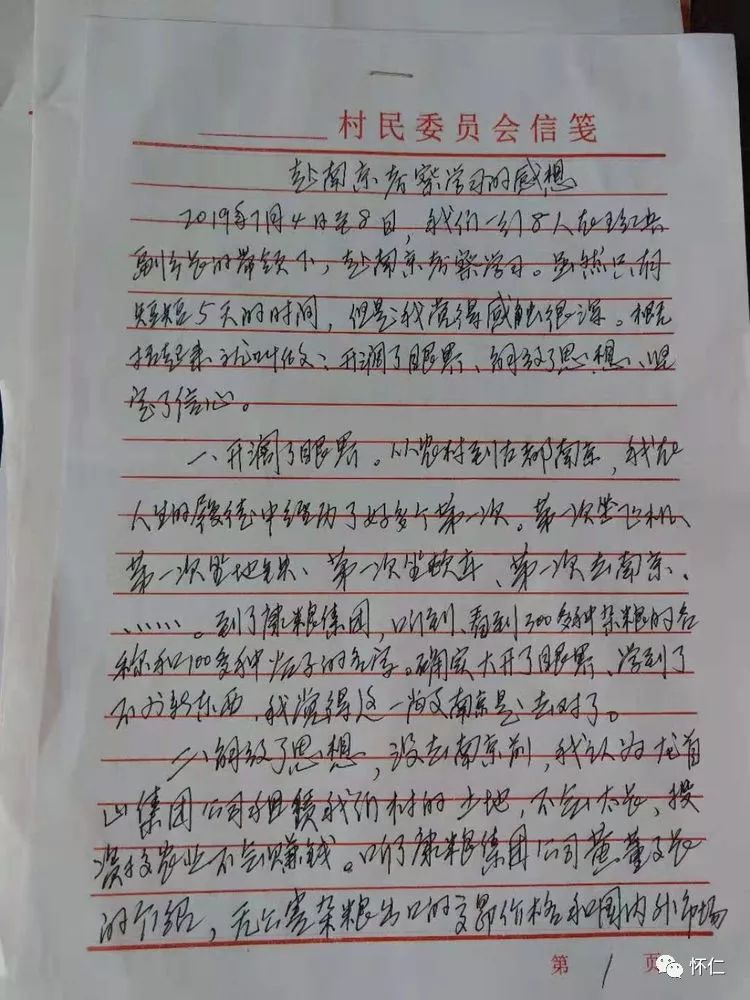 村民委员会信笺
赴南京考察学习的感想
2019年7月4日至8日，我们一行8人在王红兵
副市长的带领下，赴南京考察学习。虽然只有
短短5天的时间，但是我觉得感触很深。概
括起来说叫做：开阔了眼界、解放了思想、坚
定了信心。
一、开阔了眼界。从农村到古都南京，我在
人生的履程中经历了好多个第一次。第一次坐飞机、
第一次坐地铁、第一次坐轿车、第一次去南京、
……。到了康粮集团，听到、看到300多种杂粮的名
称和100多种粘子的名字。确实大开了眼界、学到了
不少新东西，我觉得这一趟南京是去对了。
二、解放了思想，没去南京前，我认为龙首
山集团公司租赁我们村的土地，不会太长，投
资农业不会赚钱。听了康粮集团公司董董事长
的介绍，无公害杂粮出口的交易价格和国内外市场
第 1 页
怀仁